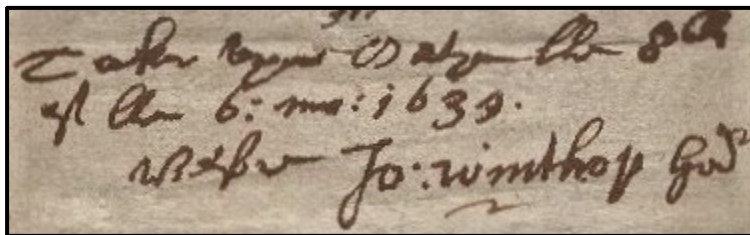 Taken vpon Oath the 8th
of the 6: mo: 1639.
Before Jo: winthop Gov<sup>r</sup>